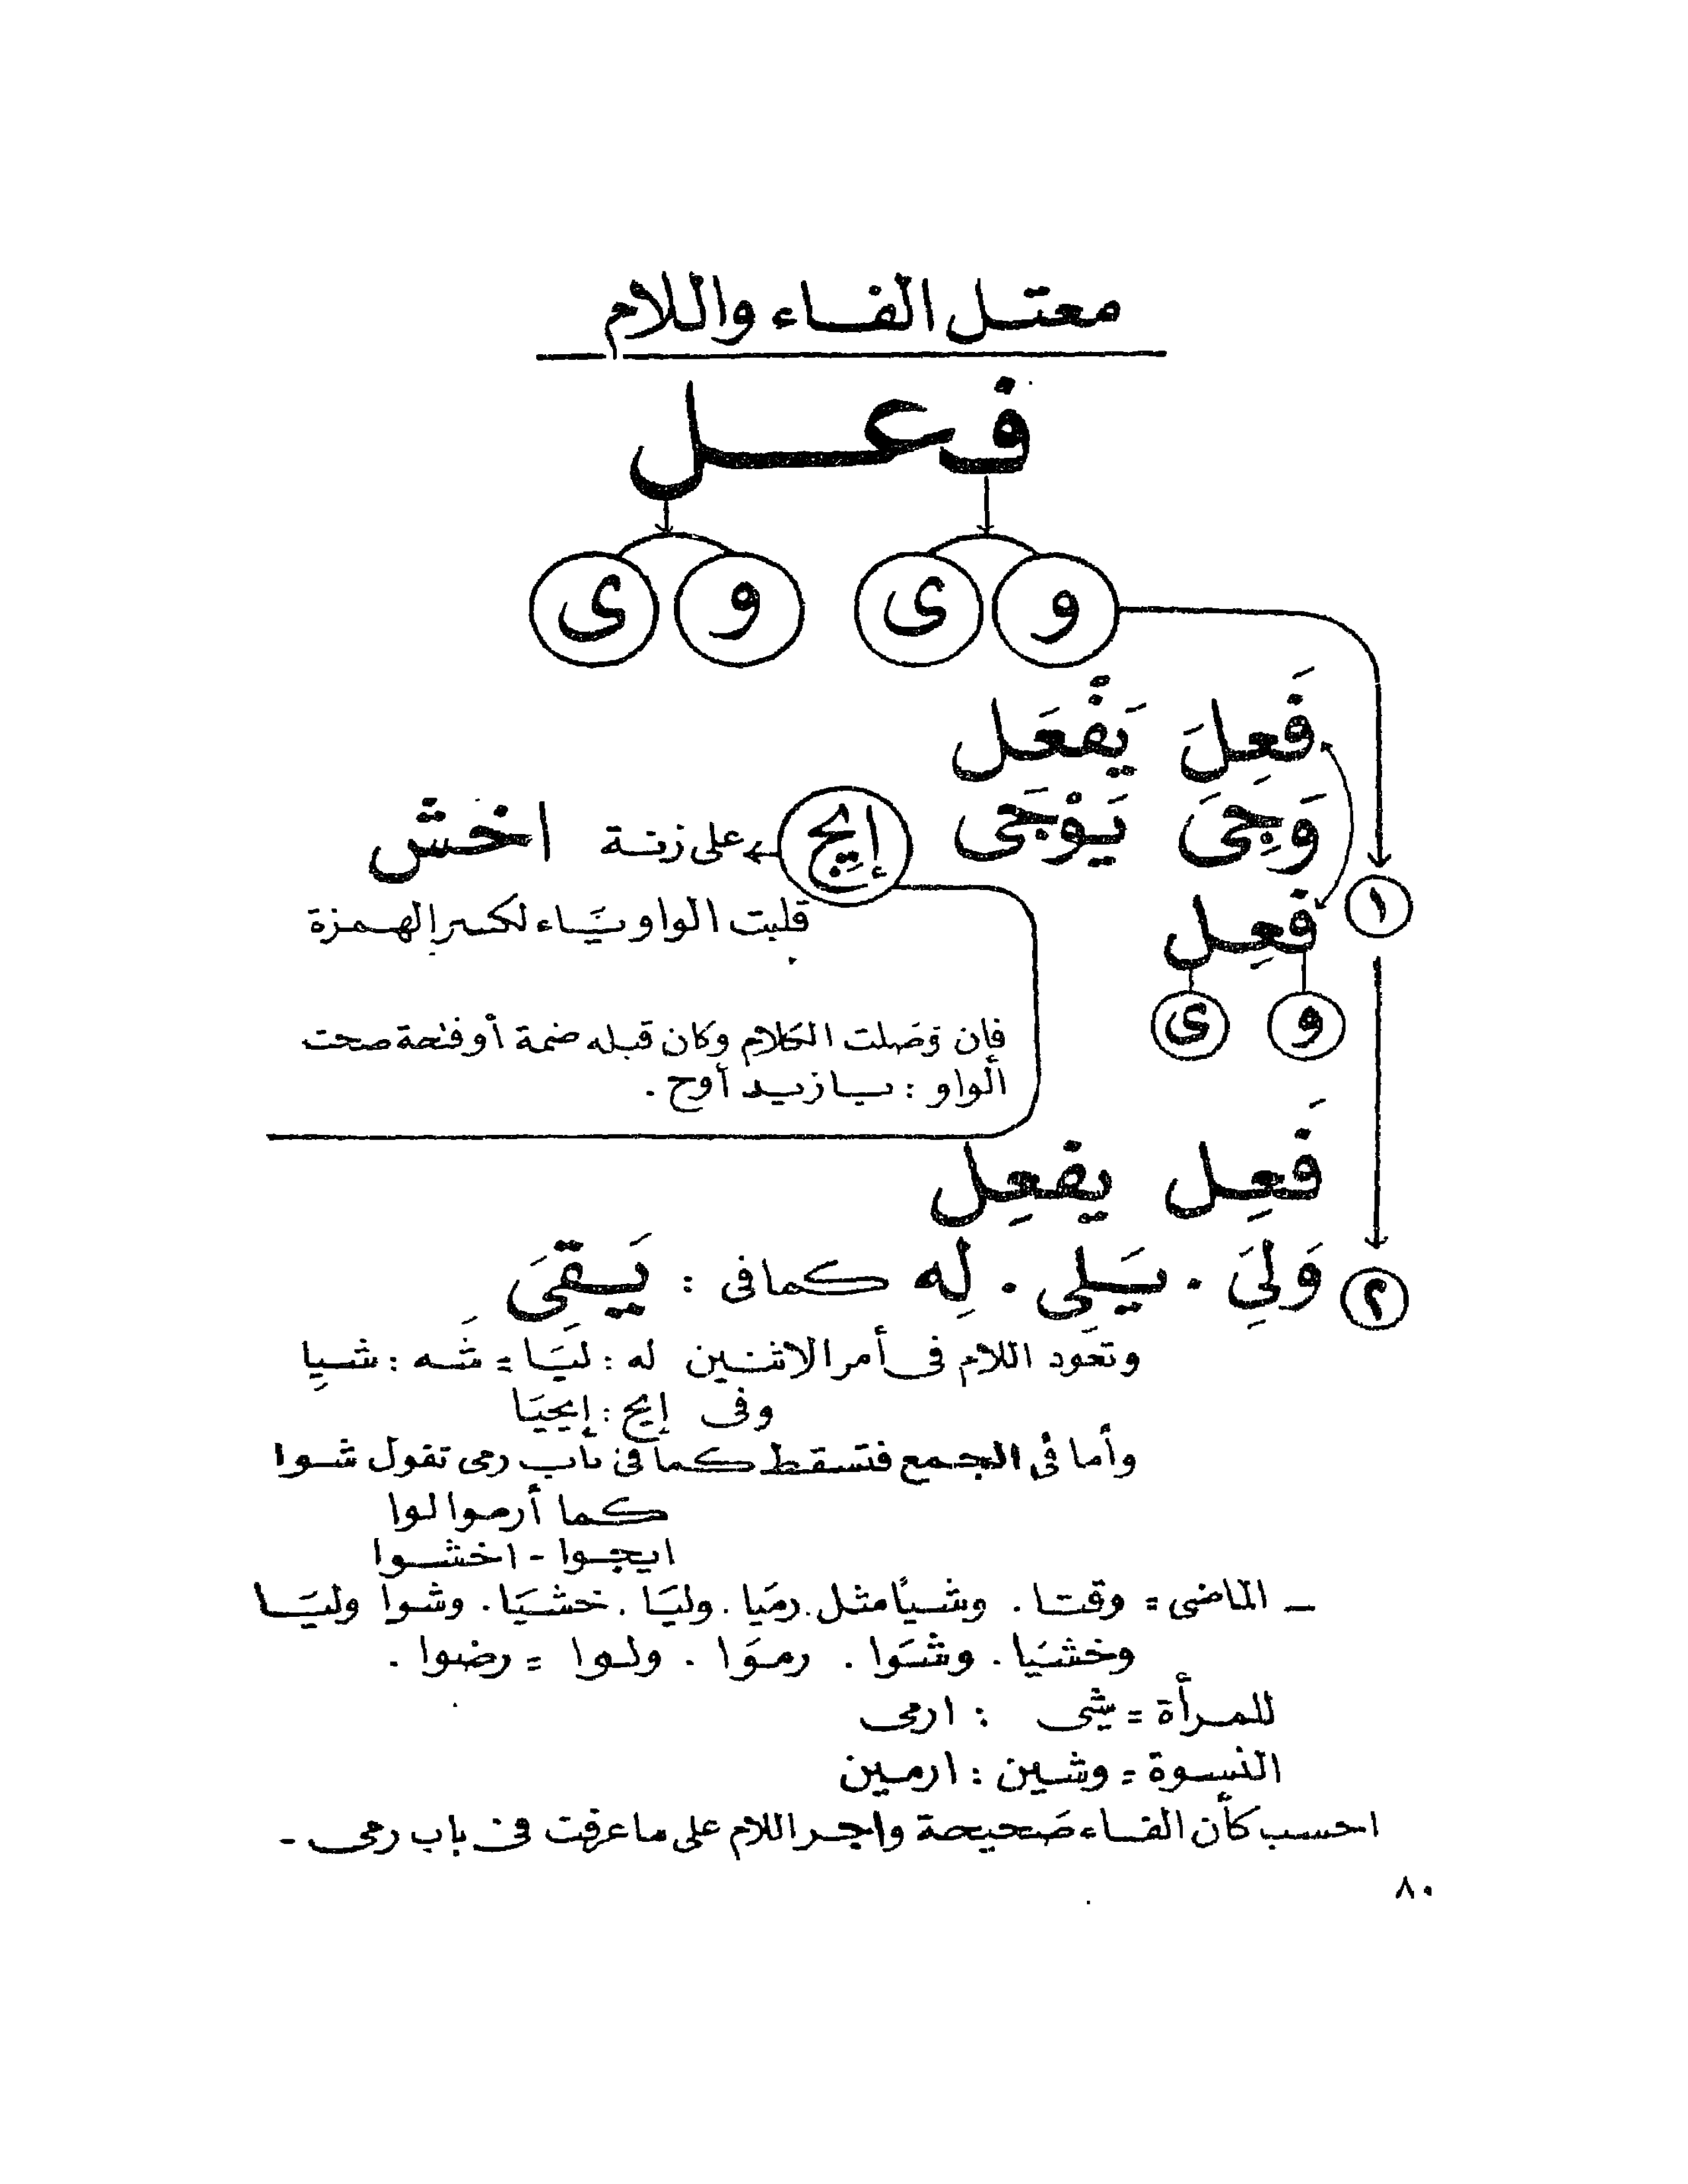 معتل الفاء واللام
فعل
و ى و ى
فَعِلَ يَفْعَل
وَجِىَ يَوْجَى إيج على زنة اخش
قلبت الواو يَاء لكسر الهمزة
١
فعِل
و ى
فإن وَصَلت الكلام وكان قبله ضمة أو فتحة صحت
الواو : يا زيد أوج .
فَعِل يفعِل
٢ وَلِىَ . يَلِى . لِه كما فى : يَقِىَ
وتعود اللام فى أمر الاثنين له : ليَا = شَه : شيِا
وفى إيج : إيجيَا
وأما فى الجمع فتسقط كما فى باب رمى تقول شوا
كما أرموا لوا
ايجوا - اخشوا
_ الماضى = وقتا . وشيَا مثل . رميَا . وليَا . خشيَا . وشوا وليَا
وخشيَا . وشَوا . رموَا . ولوا = رضوا .
للمرأة = شى : ارمى
النسوة = وشين : ارمين
احسب كأن الفاء صَحيحة واجر اللام على ما عرفت فى باب رمى -
٨٠